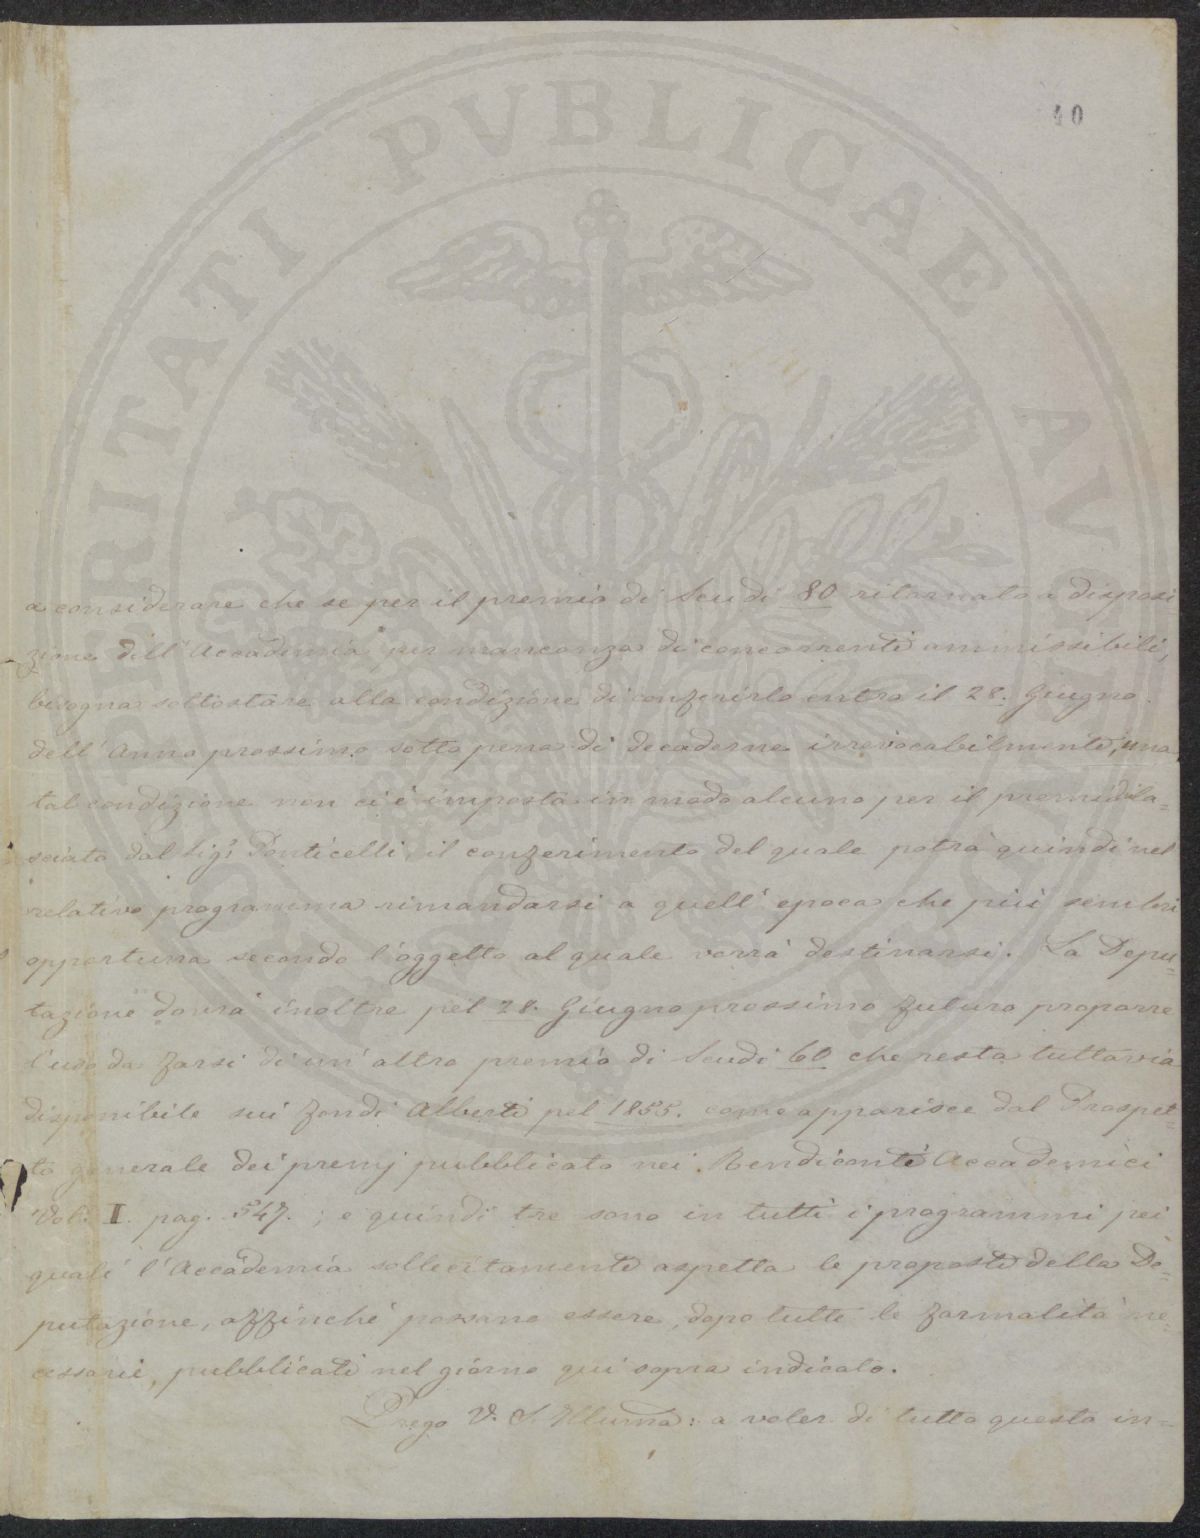 40
a considerare che se per il premio di Scudi 80 ritornato a disposi
zione dell'Accademia per mancanza di concorrenti ammissibili,
bisogna sottostare alla condizione di conferirlo entro il 28. Giugno
dell'Anno prossimo sotto pena di decaderne irrevocabilmente, una
tal condizione non ci è imposta in modo alcuno per il premio la=
sciato dal Sigr Ponticelli, il conferimento del quale potrà quindi nel
relativo programma rimandarsi a quell'epoca che più sembri
opportuna secondo l'oggetto al quale verrà destinarsi. La Depu=
tazione dovrà inoltre pel 28. Giugno prossimo futuro proporre
l'uso da farsi di un'altro premio di Scudi 60 che resta tuttavia
disponibile sui fondi Alberti pel 1855. come apparisce dal Prospet=
to generale dei premj pubblicato nei Rendiconti Accademici
Vol. I. pag. 547. ; e quindi tre sono in tutti i programmi pei
quali l'Accademia sollecitamente aspetta le proposte della De=
putazione, affinché possano essere, dopo tutte le formalità ne=
cessarie, pubblicati nel giorno qui sopra indicato.
Prego V. S. Illuma: a voler di tutto questo in=
PVBLICAE